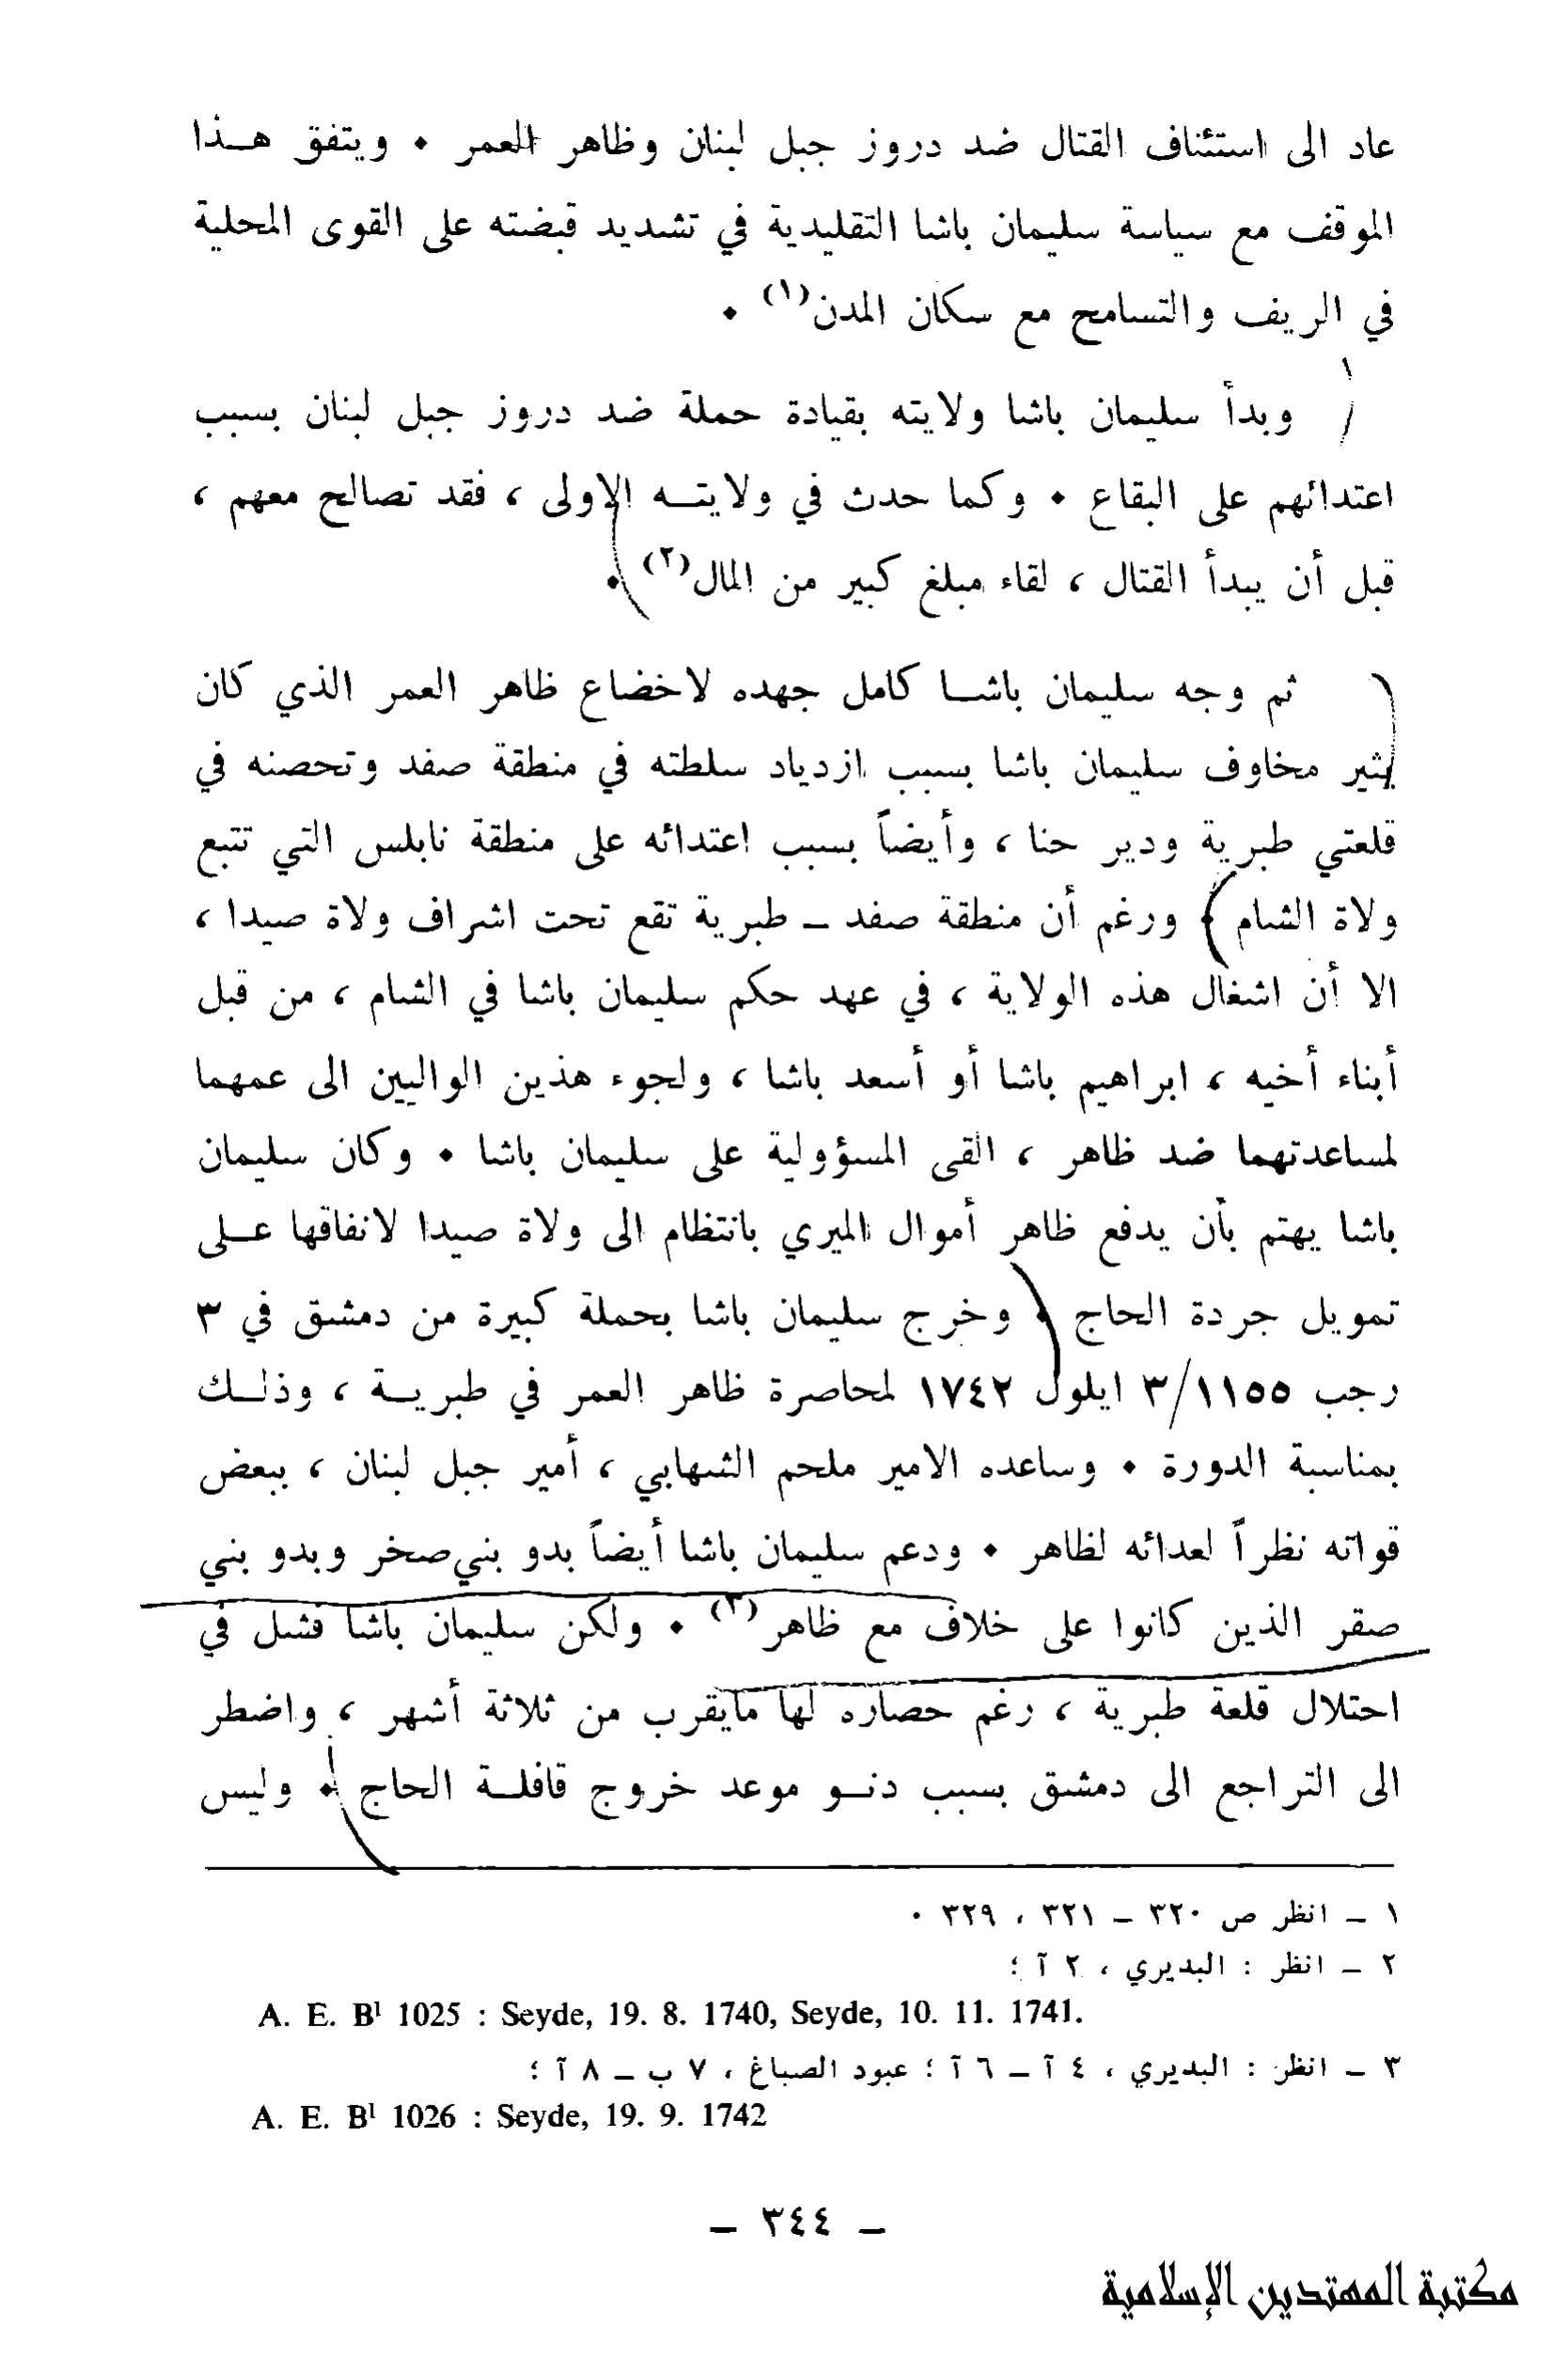 عاد الى استئناف القتال ضد دروز جبل لبنان وظاهر العمر ٠ ويتفق هـذا
الموقف مع سياسة سليمان باشا التقليدية في تشديد قبضته على القوى المحلية
في الريف والتسامح مع سكان المدن(١) ٠
وبدأ سليمان باشا ولايته بقيادة حملة ضد دروز جبل لبنان بسبب
اعتدائهم على البقاع ٠ وكما حدث في ولايتـه الاولى ، فقد تصالح معهم ،
قبل أن يبدأ القتال ، لقاء مبلغ كبير من المال(٢) ٠
ثم وجه سليمان باشـا كامل جهده لاخضاع ظاهر العمر الذي كان
يثير مخاوف سليمان باشا بسبب ازدياد سلطته في منطقة صفد وتحصنه في
قلعتي طبرية ودير حنا ، وأيضاً بسبب اعتدائه على منطقة نابلس التي تتبع
ولاة الشام ٠ ورغم أن منطقة صفد ــ طبرية تقع تحت اشراف ولاة صيدا ،
الا أن اشغال هذه الولاية ، في عهد حكم سليمان باشا في الشام ، من قبل
أبناء أخيه ، ابراهيم باشا أو أسعد باشا ، ولجوء هذين الواليين الى عمهما
لمساعدتهما ضد ظاهر ، القى المسؤولية على سليمان باشا ٠ وكان سليمان
باشا يهتم بأن يدفع ظاهر أموال الميري بانتظام الى ولاة صيدا لانفاقها عـلى
تمويل جردة الحاج ٠ وخرج سليمان باشا بحملة كبيرة من دمشق في ٣
رجب ١١٥٥/٣ ايلول ١٧٤٢ لمحاصرة ظاهر العمر في طبريـة ، وذلـك
بمناسبة الدورة ٠ وساعده الامير ملحم الشهابي ، أمير جبل لبنان ، ببعض
قواته نظراً لعدائه لظاهر ٠ ودعم سليمان باشا أيضاً بدو بني صخر وبدو بني
صقر الذين كانوا على خلاف مع ظاهر(٣) ٠ ولكن سليمان باشا فشل في
احتلال قلعة طبرية ، رغم حصاره لها مايقرب من ثلاثة أشهر ، واضطر
الى التراجع الى دمشق بسبب دنـو موعد خروج قافلـة الحاج ٠ وليس
١ ــ انظر ص ٣٢٠ ــ ٣٢١ ، ٣٢٩ ٠
٢ ــ انظر : البديري ، ٢ آ ؛
A. E. B¹ 1025 : Seyde, 19. 8. 1740, Seyde, 10. 11. 1741.
٣ ــ انظر : البديري ، ٤ آ ــ ٦ آ ؛ عبود الصباغ ، ٧ ب ــ ٨ آ ؛
A. E. B¹ 1026 : Seyde, 19. 9. 1742
ــ ٣٤٤ ــ
مكتبة المهتدين الإسلامية